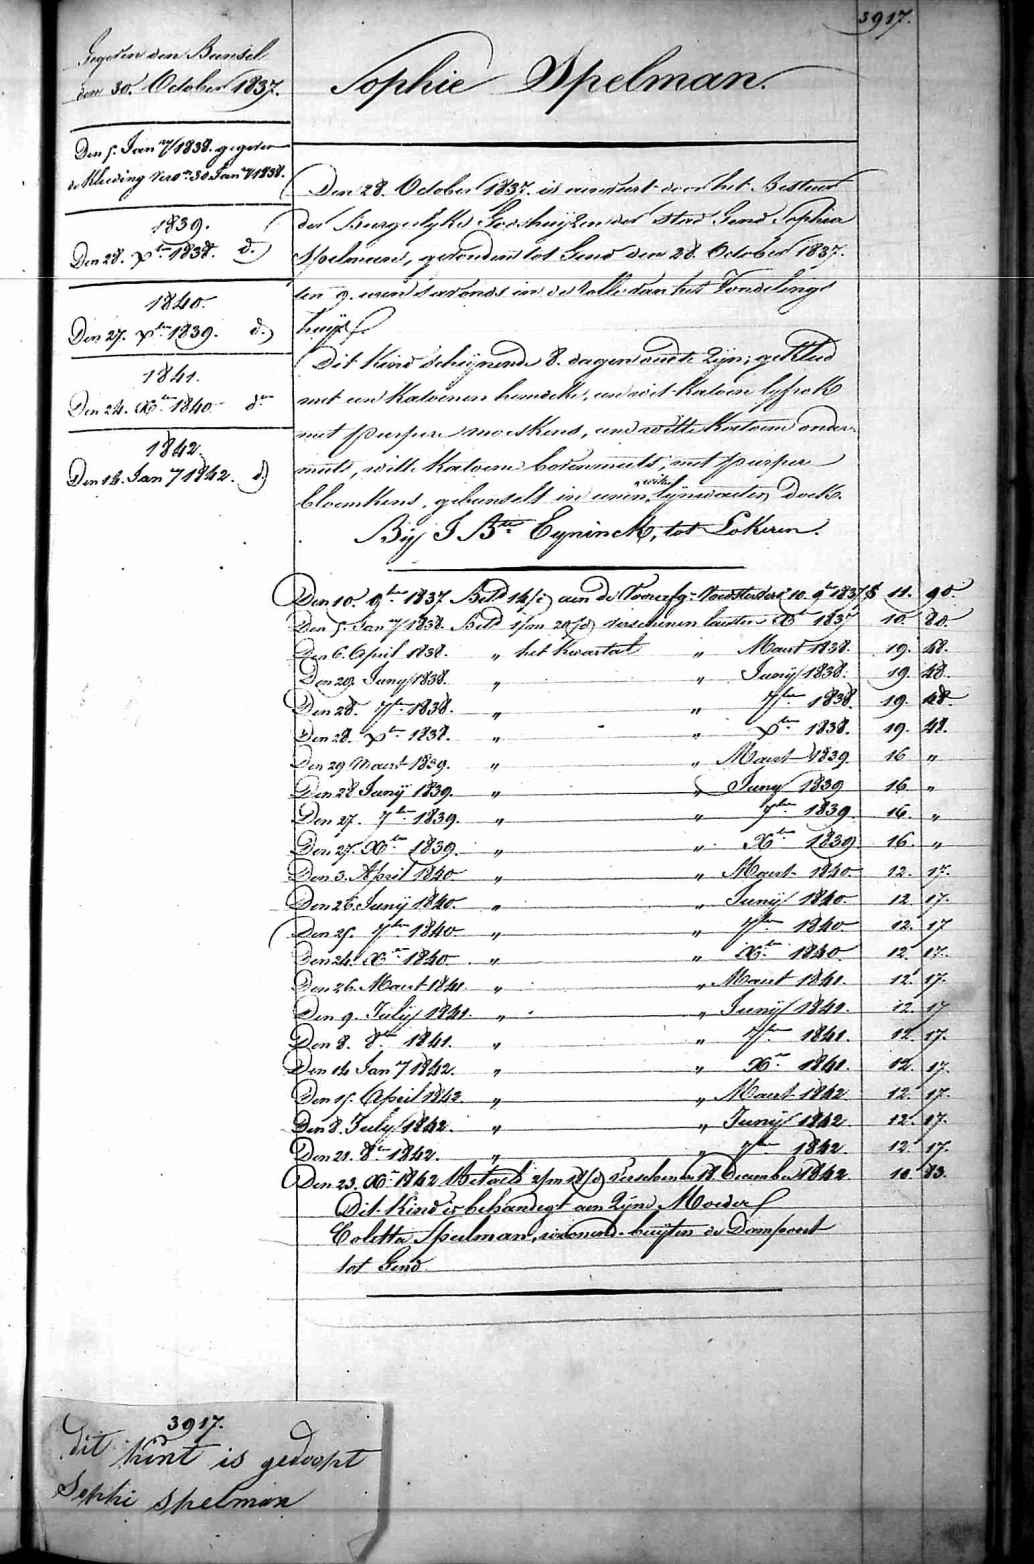 3917.
Gegeven den Bunsel
den 30. October 1837.
Den 5. Jan ry 1838. gegeven
de Kleeding vero en 30 Jan ry 1838.
1839.
Den 28. X ber 1838. d.
1840.
Den 27. X ber 1839. d.
1841.
Den 24. X ber 1840. d o
1842.
Den 14. Jan ry 1842. d.
Sophie Spelman.
Den 28. October 1837. is door het Bestuur
der Burgerlyke Godshuijzen der stad Gend Sophia
Spelman, gevonden tot Gend den 28. October 1837.
ten 9. uren s'avonds in de rolle van het Vondelings
huijs
Dit Kind schijnende 8. dagen oud te zijn; gekleed
met een Katoenen hemdeke, een wit Katoen lyfrok
met purpere moeskens, een witte Katoene onder-
muts, witte Katoene bovenmuts, met purper
bloemkens, gebunselt in eenen witte lijnwaeten Doek.
Bij J. B te Eyninck, tot Lokeren.
Den 10. 9 ber 1837. Beld 14/d aen de Voorzg. Voedster vers 10. 9 ber 1837 f 11. 90.
Den 5. Jan ry 1838. Beld 1/m 20/d verschenen lausten X ber 1837 10. 80.
Den 6. April 1838. " het Kwartael " Maert 1838. 19. 48.
Den 29. Juny 1838. " " Junij 1838. 19. 48.
Den 28. 7 ber 1838. " " 7 ber 1838. 19. 48.
Den 28. X ber 1838. " " X ber 1838. 19. 48.
Den 29 Maert 1839. " " Maert 1839. 16 "
Den 28 Junij 1839. " " Juny 1839 16. "
Den 27. 7 ber 1839. " " 7 ber 1839. 16. "
Den 27. X ber 1839. " " X ber 1839 16. "
Den 3. April 1840 " " Maert 1840 12. 17.
Den 26 Junij 1840. " " Junij 1840. 12. 17.
Den 25. 7 ber 1840 " " 7 ber 1840 12. 17
Den 24. X ber 1840. " " X ber 1840. 12. 17.
Den 26. Maert 1841. " " Maert 1841. 12. 17.
Den 9. Julij 1841. " " Junij 1841. 12. 17
Den 8. 8 ber 1841. " " 7 ber 1841. 12. 17.
Den 14 Jan ry 1842. " " X ber 1841. 12. 17.
Den 15. April 1842. " " Maert 1842. 12. 17.
Den 8. July 1842. " " Junij 1842 12. 17.
Den 21. 8 ber 1842. " " 7 ber 1842. 12. 17.
Den 23. X ber 1842 Betaelt 2/m 18/d verschenen 18. December 1842. 10. 83.
Dit Kind is behandigt aen Zijne Moeder
Coletta Spelman, woonend buijten de Dampoort
tot Gend.
3917.
dit kint is gedoopt
Sophi Spelman